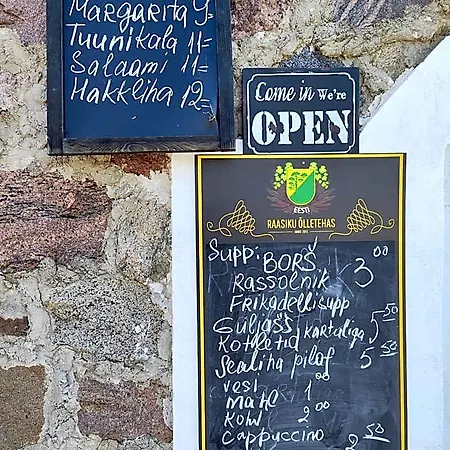 Margarita 9=
Tuunikala 11=
Salaami 11=
Hakkliha 12=
Come in We're
OPEN
EESTI
RAASIKU ÕLLETEHAS
Supp:
BORŠ
Rassolnik 3 00
Frikadellisupp
Guljašš
Kotletid kartaliga 5 50
Sealiha pilaf 5 50
vesi
mahl 1 00
Kohv 2 00
Cappuccino 2 50